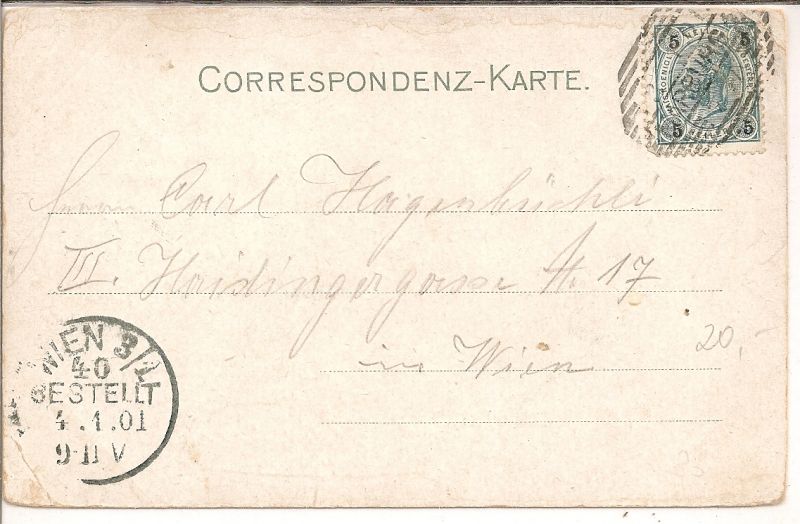 CORRESPONDENZ-KARTE.
5 5
5 5
Herrn Carl Hagenbüchli
III. Haidingergasse № 17
in Wien
20,-
WIEN 3/1
40
BESTELLT
4.1.01
9-11 V